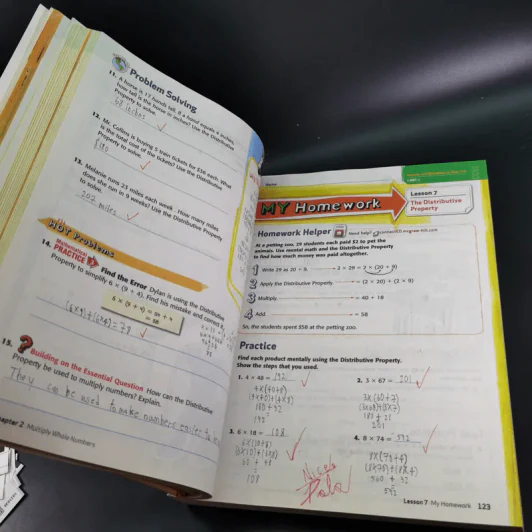 Problem Solving
11. A horse is 17 hands tall. If a hand equals 4 inches,
how tall is the horse in inches? Use the Distributive
Property to solve.
68 inches
12. Mr. Collins is buying 5 train tickets for $36 each. What
is the total cost of the tickets? Use the Distributive
Property to solve.
$180
13. Melanie runs 23 miles each week. How many miles
does she run in 9 weeks? Use the Distributive Property
to solve.
207 miles
HOT Problems
14. Mathematical
PRACTICE
Find the Error Dylan is using the Distributive
Property to simplify 6 × (9 + 4). Find his mistake and correct it.
6 × (9 + 4) = 54 + 4
= 58
(6×9)+(6×4)=78
15. Building on the Essential Question How can the Distributive
Property be used to multiply numbers? Explain.
They can be used to make numbers easier to
Chapter 2 Multiply Whole Numbers
Name
MY Homework
Lesson 7
The Distributive
Property
Homework Helper
Need help? connectED.mcgraw-hill.com
At a petting zoo, 29 students each paid $2 to pet the
animals. Use mental math and the Distributive Property
to find how much money was paid altogether.
1 Write 29 as 20 + 9. 2 × 29 = 2 × (20 + 9)
2 Apply the Distributive Property. = (2 × 20) + (2 × 9)
3 Multiply. = 40 + 18
4 Add. = 58
So, the students spent $58 at the petting zoo.
Practice
Find each product mentally using the Distributive Property.
Show the steps that you used.
1. 4 × 48 = 192
4×(40+8)
(4×40)+(4×8)
160 + 32
192
2. 3 × 67 = 201
3×(60+7)
(3×60)+(3×7)
180 + 21
201
3. 6 × 18 = 108
6×(10+8)
(6×10)+(6×8)
60 + 48
108
4. 8 × 74 = 592
8×(70+4)
(8×70)+(8×4)
560 + 32
592
Lesson 7 My Homework 123